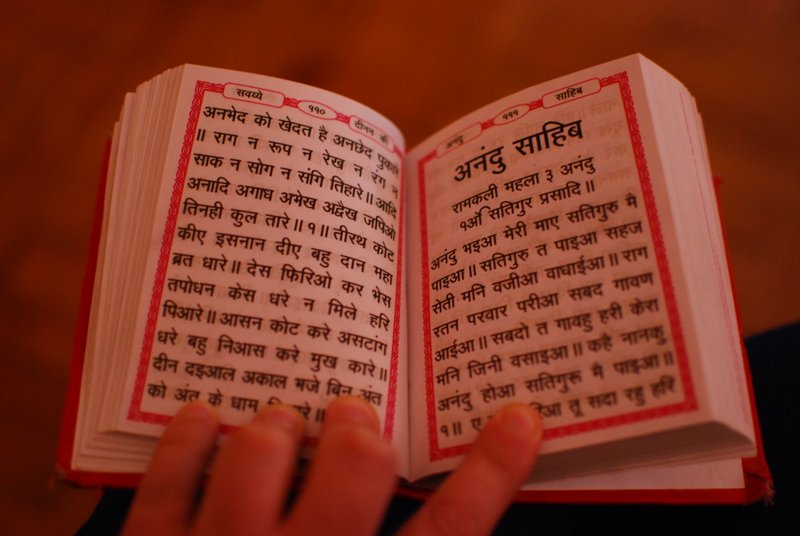 सवय्ये ११० दीनन की
अनभेद को खेदत है अनछेद पुकारे
॥ राग न रूप न रेख न रंग न
साक न सोग न संगि तिहारे ॥ आदि
अनादि अगाध अभेख अद्वैख जपिओ
तिनही कुल तारे ॥ १ ॥ तीरथ कोट
कीए इसनान दीए बहु दान महा
ब्रत धारे ॥ देस फिरिओ कर भेस
तपोधन केस धरे न मिले हरि
पिआरे ॥ आसन कोट करे असटांग
धरे बहु निआस करे मुख कारे ॥
दीन दइआल अकाल भजे बिन अंत
को अंत के धाम ॥
अनंदु १११ साहिब
अनंदु साहिब
रामकली महला ३ अनंदु
१ओं सतिगुर प्रसादि ॥
अनंदु भइआ मेरी माए सतिगुरू मै
पाइआ ॥ सतिगुरु त पाइआ सहज
सेती मनि वजीआ वाधाईआ ॥ राग
रतन परवार परीआ सबद गावण
आईआ ॥ सबदो त गावहु हरी केरा
मनि जिनी वसाइआ ॥ कहे नानकु
अनंदु होआ सतिगुरू मै पाइआ ॥
१ ॥ ए तू सदा रहु हरि